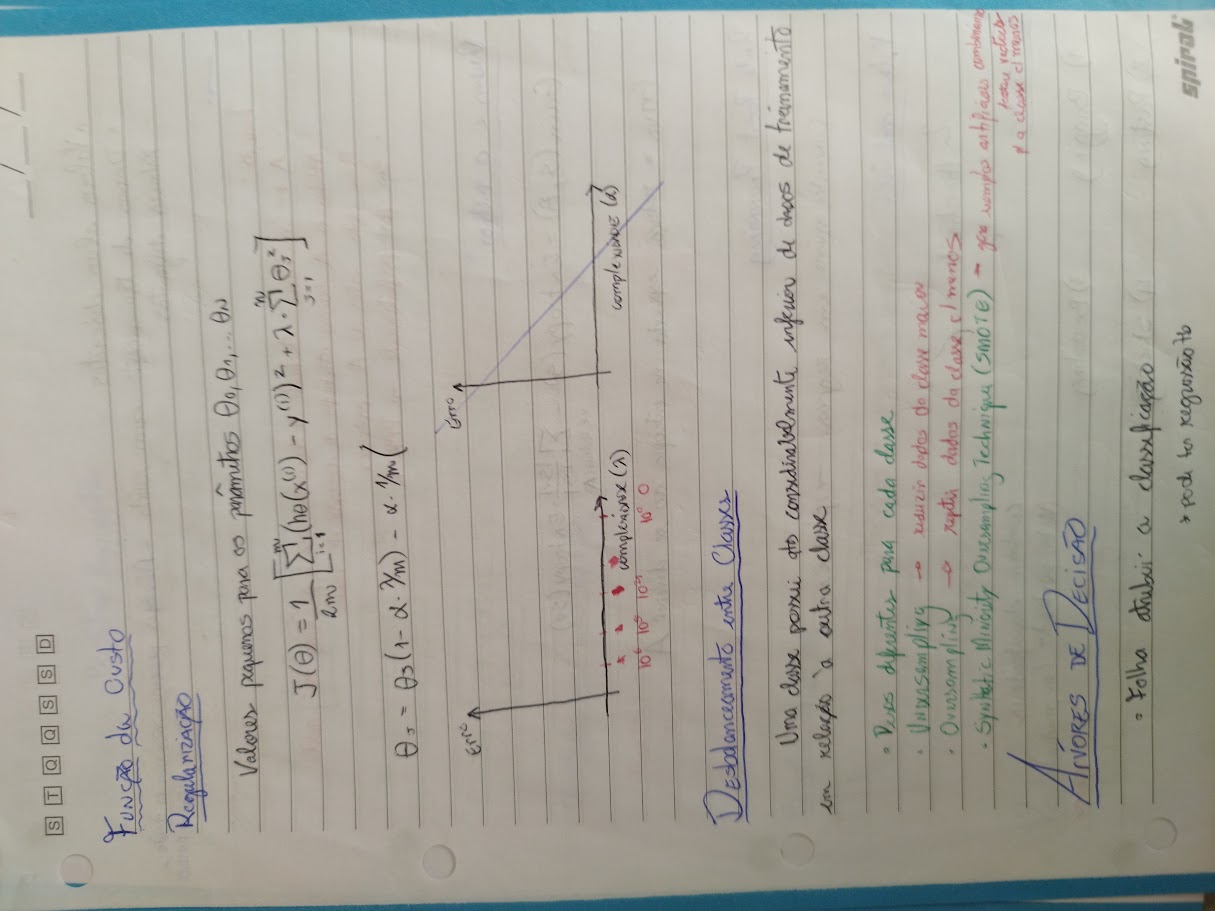 S T Q Q S S D
/ /
FUNÇÃO da Custo
Regularização
Valores pequenos para os parâmetros θ0, θ1, ... θN
J(θ) = 1/2m [ m∑i=1 (hθ(x⁽ⁱ⁾) - y⁽ⁱ⁾)² + λ · n∑J=1 θJ² ]
θJ = θJ(1 - α · λ/m) - α · 1/m (
Erro
Erro
complexidade (λ)
complexidade (λ)
10⁰ 0
DESBALANCEAMENTO entre Classes
Uma classe possui qto considerabelmente inferior de dados de treinamento
em relação à outra classe
• Pesos diferentes para cada classe
• Undersampling → reduzir dados da classe maior
• Oversampling → repetir dados da classe c/ menos
• Synthetic Minority Oversampling Technique (SMOTE) → gera exemplos artificiais combinando
p/ a classe c/ menos
ÁRVORES DE DECISÃO
• Folha atribui a classificação
* pode ter regressão tb
spiral